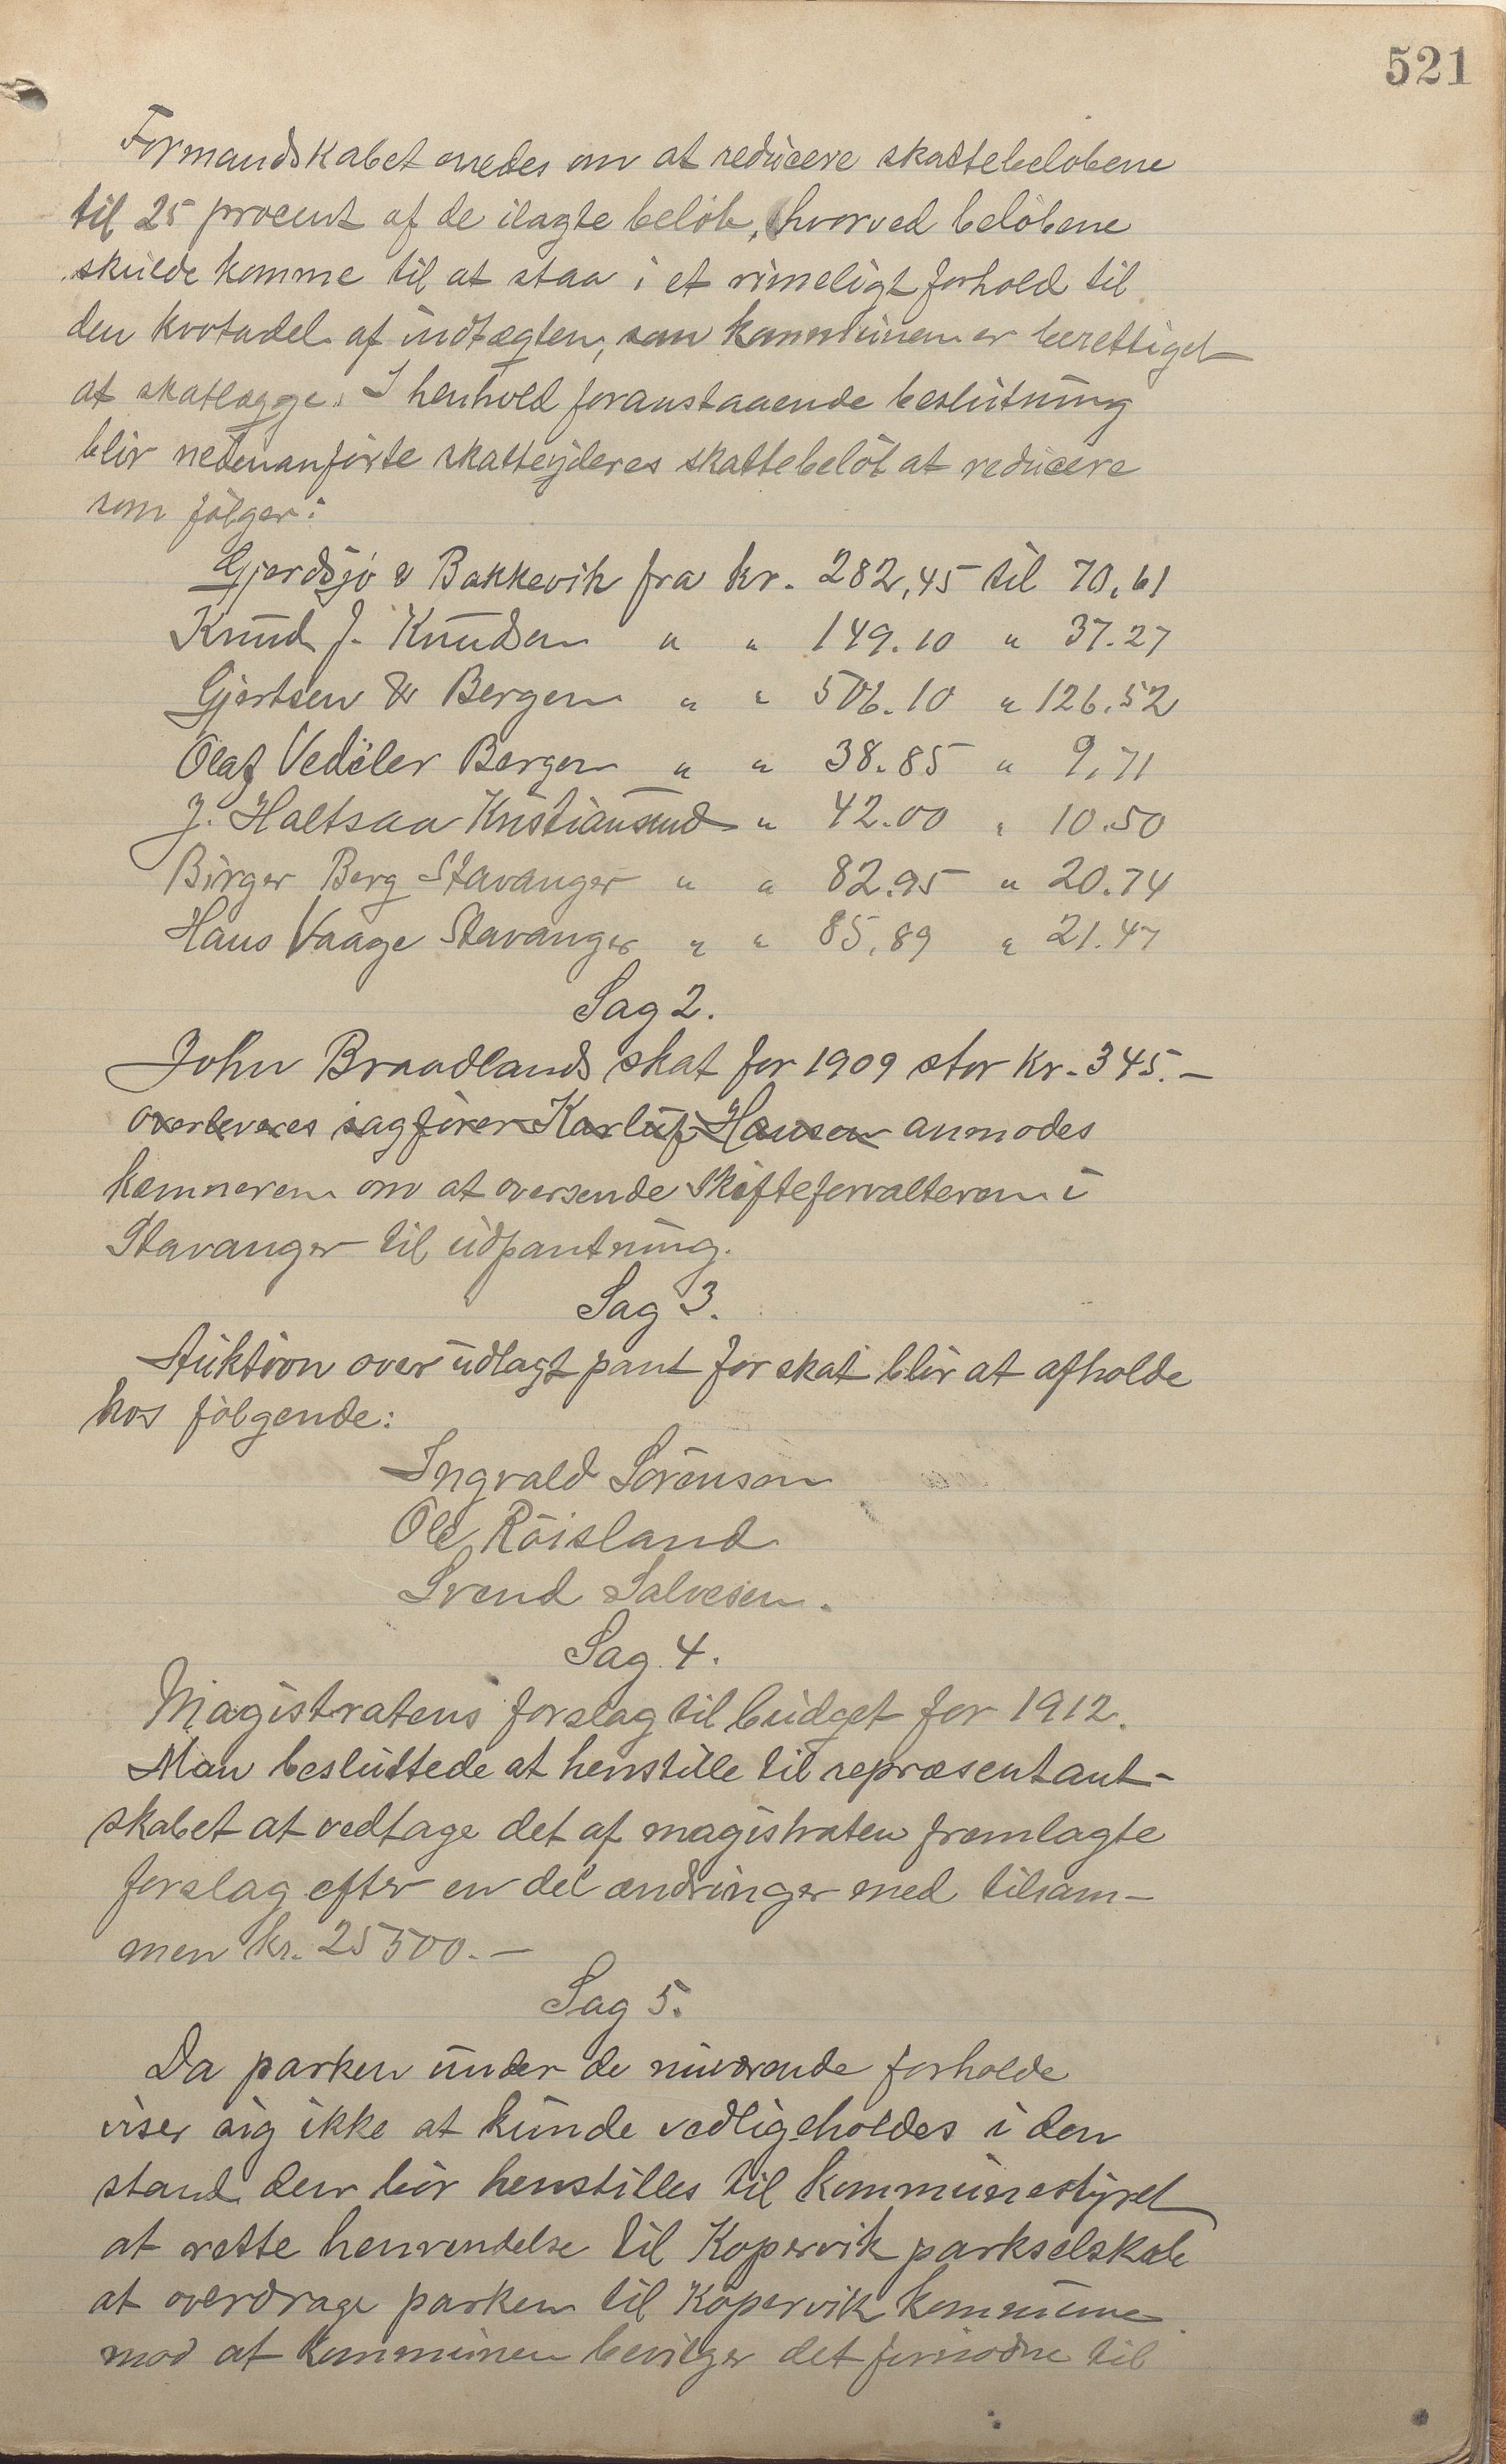 521
Formandskabet enedes om at reducere skattebeløbene
til 25 procent af de ilagte beløb, hvorved beløbene
skulde komme til at staa i et rimeligt forhold til
den kvotadel af indtægten, som kommunen er berettiget
at skatlægge. I henhold foranstaaende beslutning
blir nedenanførte skatteyderes skattebeløb at reducere
som følger:
Gjerdsjø & Bakkevik fra kr. 282,45 til 70,61
Knud J. Knudsen " " 149.10 " 37.27
Gjertsen & Bergen " " 506.10 " 126.52
Olaf Vedøler Bergen " " 38.85 " 9,71
J. Haltsaa Kristiansund " 42.00 " 10.50
Birger Berg Stavanger " " 82.95 " 20.74
Hans Vaage Stavanger " " 85,89 " 21.47
Sag 2.
John Braadlands skat for 1909 stor kr. 345.-
overleveres sagfører Karluf Hansen anmodes
kæmneren om at oversende Skifteforvalteren i
Stavanger til udpantning.
Sag 3.
Auktion over udlagt pant for skat blir at afholde
hos følgende:
Ingvald Sørensen
Ole Røisland
Svend Salvesen.
Sag 4.
Magistratens forslag til budget for 1912.
Man besluttede at henstille til repræsentant-
skabet at vedtage det af magistraten fremlagte
forslag efter en del ændringer med tilsam-
men kr. 25500.-
Sag 5.
Da parken under de nuværende forholde
viser sig ikke at kunde vedligeholdes i den
stand den bør henstilles til kommunestyret
at rette henvendelse til Kopervik parkselskab
at overdrage parken til Kopervik kommune
mod at kommunen bevilger det fornødne til